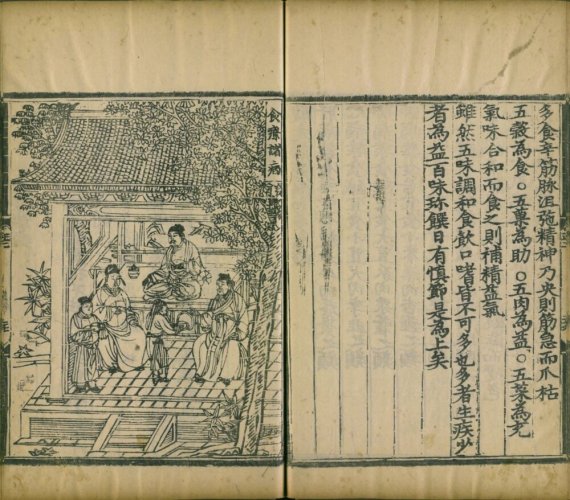 多食辛筋脉沮弛精神乃央則筋急而爪枯
五穀為食○五菓為助○五肉為益○五菜為充
氣味合和而食之則補精益氣
雖然五味調和食飲口嗜皆不可多也多者生疾少
者為益百味珎饌日有慎節是為上矣
食療諸病